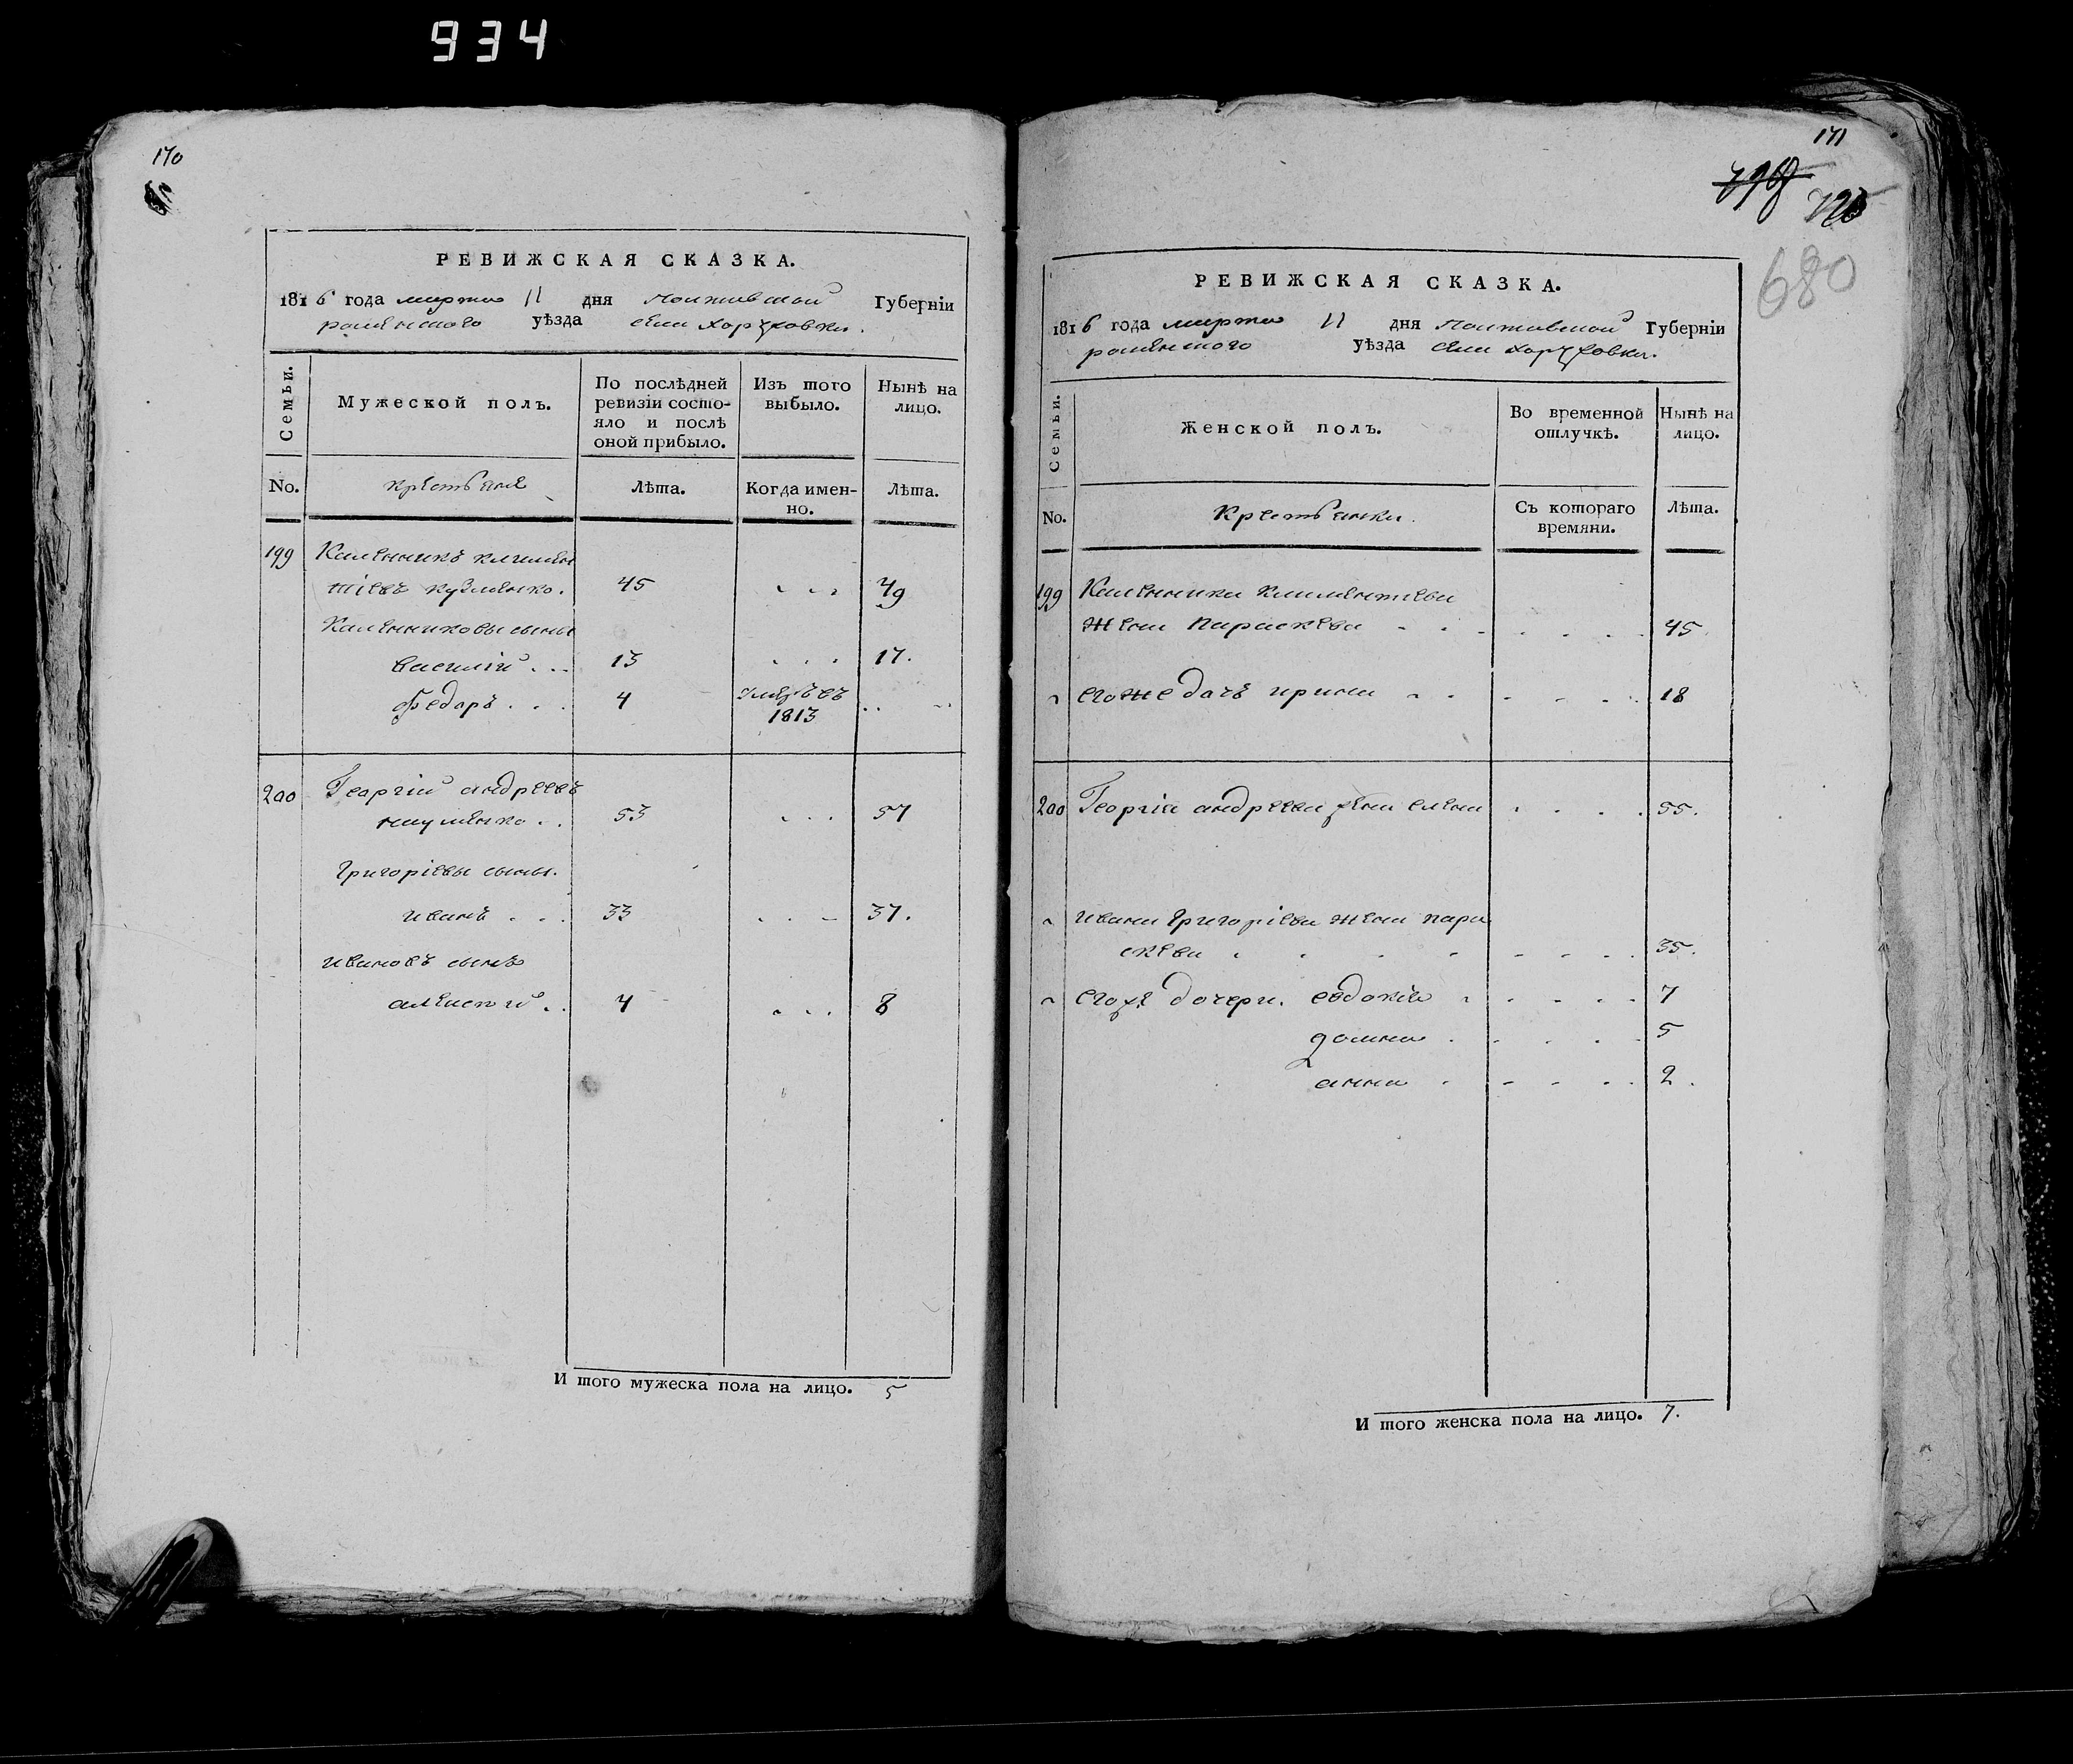 934
170
РЕВИЖСКАЯ СКАЗКА.
1816 года марта 11 дня Полтавской Губерніи
роменского уѣзда села Харковки.
Семьи.
Мужеской полъ.
По послѣдней ревизіи состояло и послѣ оной прибыло.
Изъ того выбыло.
Нынѣ на лицо.
No. крестьяне Лѣта. Когда именно. Лѣта.
199 Каленникъ климен
тіевъ кузменко. 45 . . . 49
Каленниковы сыны
василій . . . 13 . . . 17.
федоръ . . . 4 умре въ 1813 . . . .
200 Георгій андреевъ
53 . . . 57
григоріевы сыны.
иванъ . . . 33 . . . 37.
ивановъ сынъ
алексей . . 4 . . . 8
И того мужеска пола на лицо. 5
171
680
РЕВИЖСКАЯ СКАЗКА.
1816 года марта 11 дня Полтавской Губерніи
роменского уѣзда села Харковки.
Семьи.
Женской полъ.
Во временной отлучкѣ.
Нынѣ на лицо.
No. Крестьянки. Съ котораго времяни. Лѣта.
199 Каленника климентиева
жена Параскева . . . . . . . 45.
его же дочь ирина . . . . . . 18
200 Георгія андреева жена елена . . . . 55.
ивана григоріева жена пара
скева . . . . . . . . 35.
его же дочери. евдокія . . . . . 7
домна . . . . . 5
анна . . . . . 2.
И того женска пола на лицо. 7.